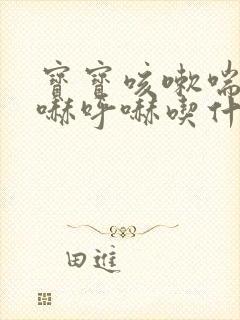 寶寶咳嗽喘
嚇呼嚇喫什
田進